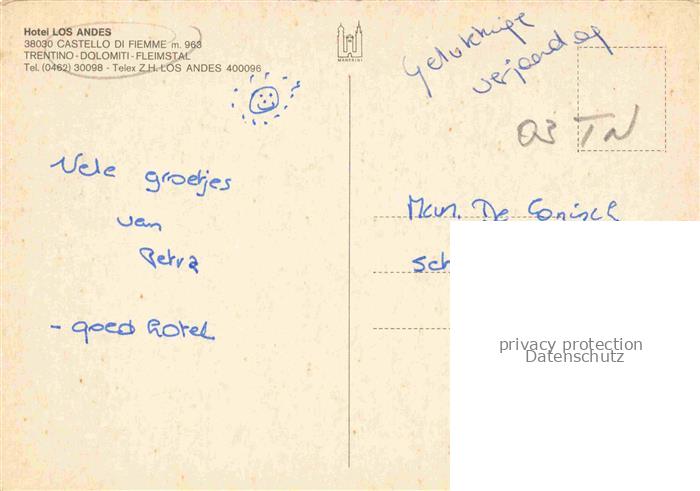 Hotel LOS ANDES
38030 CASTELLO DI FIEMME m. 963
TRENTINO - DOLOMITI - FLEIMSTAL
Tel. (0462) 30098 - Telex Z.H. LOS ANDES 400096
MANFRINI
Gelukkige
verjaardag
03 TN
Vele groetjes
van
Petra
- goed hotel
De Coninck
Sch
privacy protection
Datenschutz